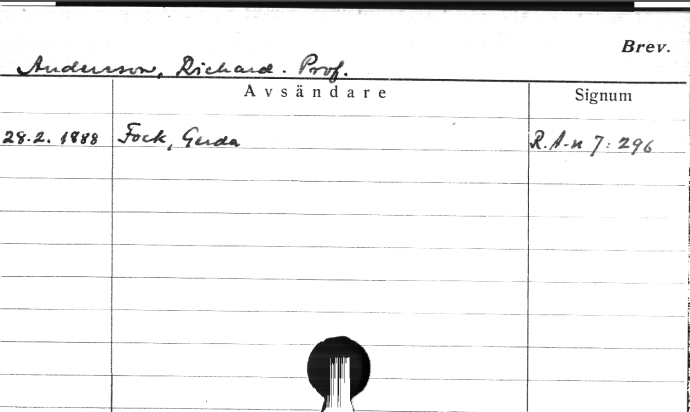 Brev.
Andersson, Richard. Prof.
Avsändare Signum
28.2.1888 Fock, Gerda R.A-n 7:296